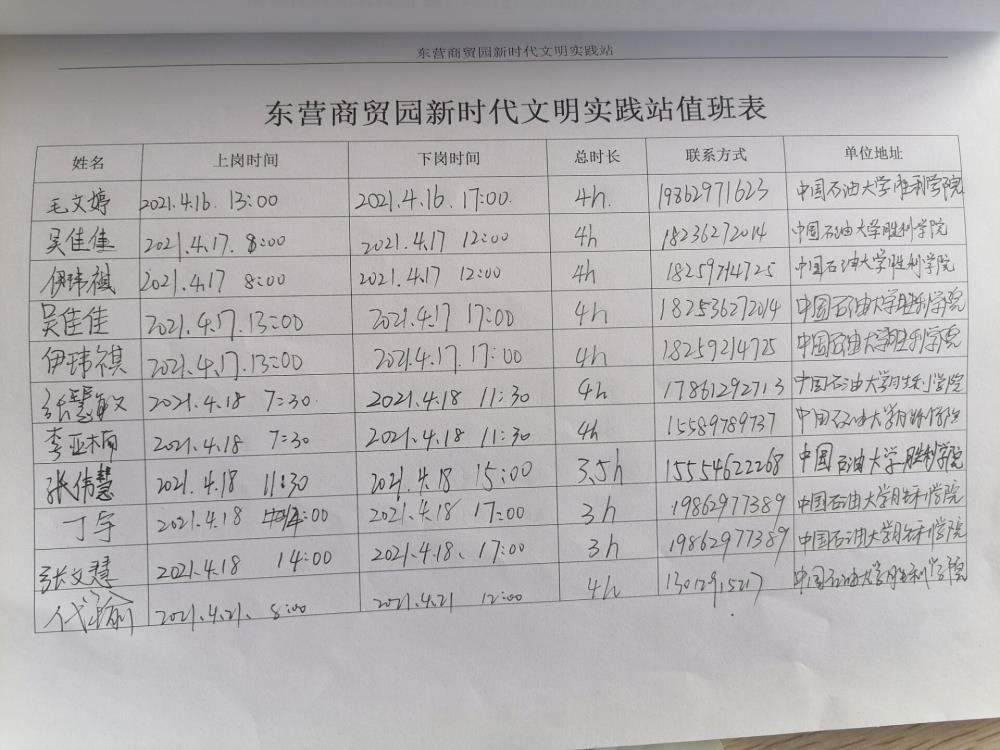 东营商贸园新时代文明实践站
东营商贸园新时代文明实践站值班表
姓名 上岗时间 下岗时间 总时长 联系方式 单位地址
毛文婷 2021.4.16. 13:00 2021.4.16. 17:00. 4h. 19862971623 中国石油大学胜利学院
吴佳佳 2021.4.17. 8:00 2021.4.17 12:00 4h 18236272014 中国石油大学胜利学院
伊玮祺 2021.4.17 8:00 2021.4.17 12:00 4h 18259214725 中国石油大学胜利学院
吴佳佳 2021.4.17.13:00 2021.4.17 17:00 4h 182536272014 中国石油大学胜利学院
伊玮祺 2021.4.17.13:00 2021.4.17.17:00 4h 18259214725 中国石油大学胜利学院
张慧敏 2021.4.18 7:30. 2021.4.18 11:30 4h 17861292713 中国石油大学胜利学院
李亚楠 2021.4.18 7:30 2021.4.18 11:30 4h 15589789737 中国石油大学胜利学院
张伟慧 2021.4.18 11:30 2021.4.18 15:00 3.5h 15554622268 中国石油大学胜利学院
丁宇 2021.4.18 14:00 2021.4.18 17:00 3h 19862977389 中国石油大学胜利学院
张文慧 2021.4.18 14:00 2021.4.18. 17:00 3h 19862977389 中国石油大学胜利学院
代瑜 2021.4.21. 8:00 2021.4.21 12:00 4h 中国石油大学胜利学院